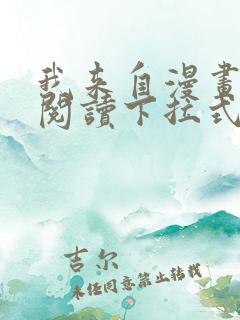 我来自漫畫
閱讀下拉式
吉尔
未经同意禁止转载